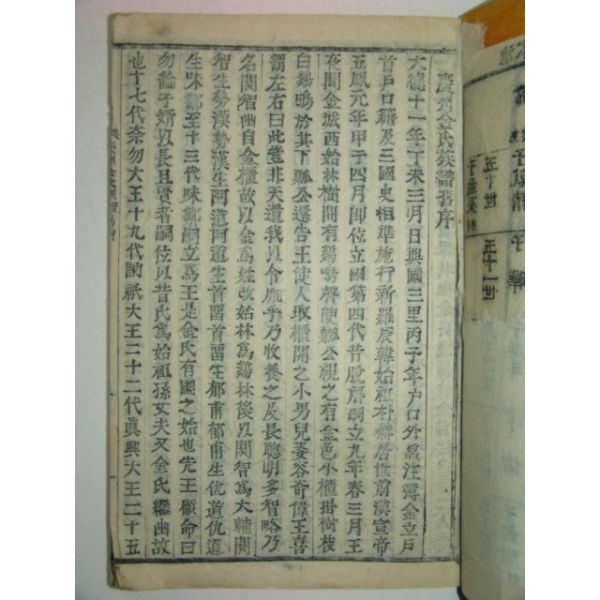 慶州金氏族譜舊序
大德十一年丁未三月日興國三里丙子年戶口外孟注簿金立戶
首戶口籍及三國史相準施行新羅辰韓始祖朴赫居世前漢宣帝
五鳳元年甲子四月卽位立國第四代昔脫解嗣立九年春三月王
夜聞金城西始林樹間有鷄鳴聲使瓢公視之有金色小櫃掛樹枝
白鷄鳴於其下瓢公還告王使人取櫃開之小男兒姿容奇偉王喜
謂左右曰此豈非天遺我以令胤乎乃收養之及長聰明多智略乃
名閼智曲自金櫃故以金爲姓改始林爲鷄林後以閼智爲大輔閼
智生勢漢勢漢生阿道阿道生首留首留生郁甫郁甫生仇道仇道
生味鄒至十三代味鄒嗣立爲王是金氏有國之始也先王顧命曰
勿論子婿以長且賢者嗣位以昔氏爲始祖孫丈夫又金氏繼曲故
也十七代奈勿大王十九代訥祇大王二十二代眞興大王二十五
五十世
五十一世